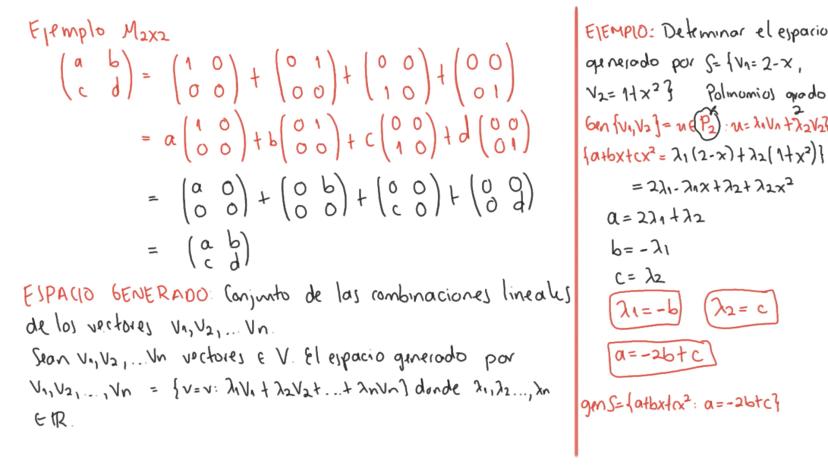 Ejemplo M2x2
(a b
c d) = (1 0
0 0) + (0 1
0 0) + (0 0
1 0) + (0 0
0 1)
= a(1 0
0 0) + b(0 1
0 0) + c(0 0
1 0) + d(0 0
0 1)
= (a 0
0 0) + (0 b
0 0) + (0 0
c 0) + (0 0
0 d)
= (a b
c d)
ESPACIO GENERADO: Conjunto de las combinaciones lineales
de los vectores V1, V2, ... Vn.
Sean V1, V2, ... Vn vectores ∈ V. El espacio generado por
V1, V2, ..., Vn = {v=v: λ1V1 + λ2V2 + ... + λnVn} donde λ1, λ2 ..., λn
∈ IR.
EJEMPLO: Determinar el espacio
generado por S={V1=2-x,
V2=1+x²} Polinomios grado 2
Gen{V1,V2}=u∈P2: u=λ1V1+λ2V2}
{a+bx+cx²=λ1(2-x)+λ2(1+x²)}
=2λ1-λ1x+λ2+λ2x²
a=2λ1+λ2
b=-λ1
c=λ2
λ1=-b λ2=c
a=-2b+c
genS={a+bx+cx²: a=-2b+c}